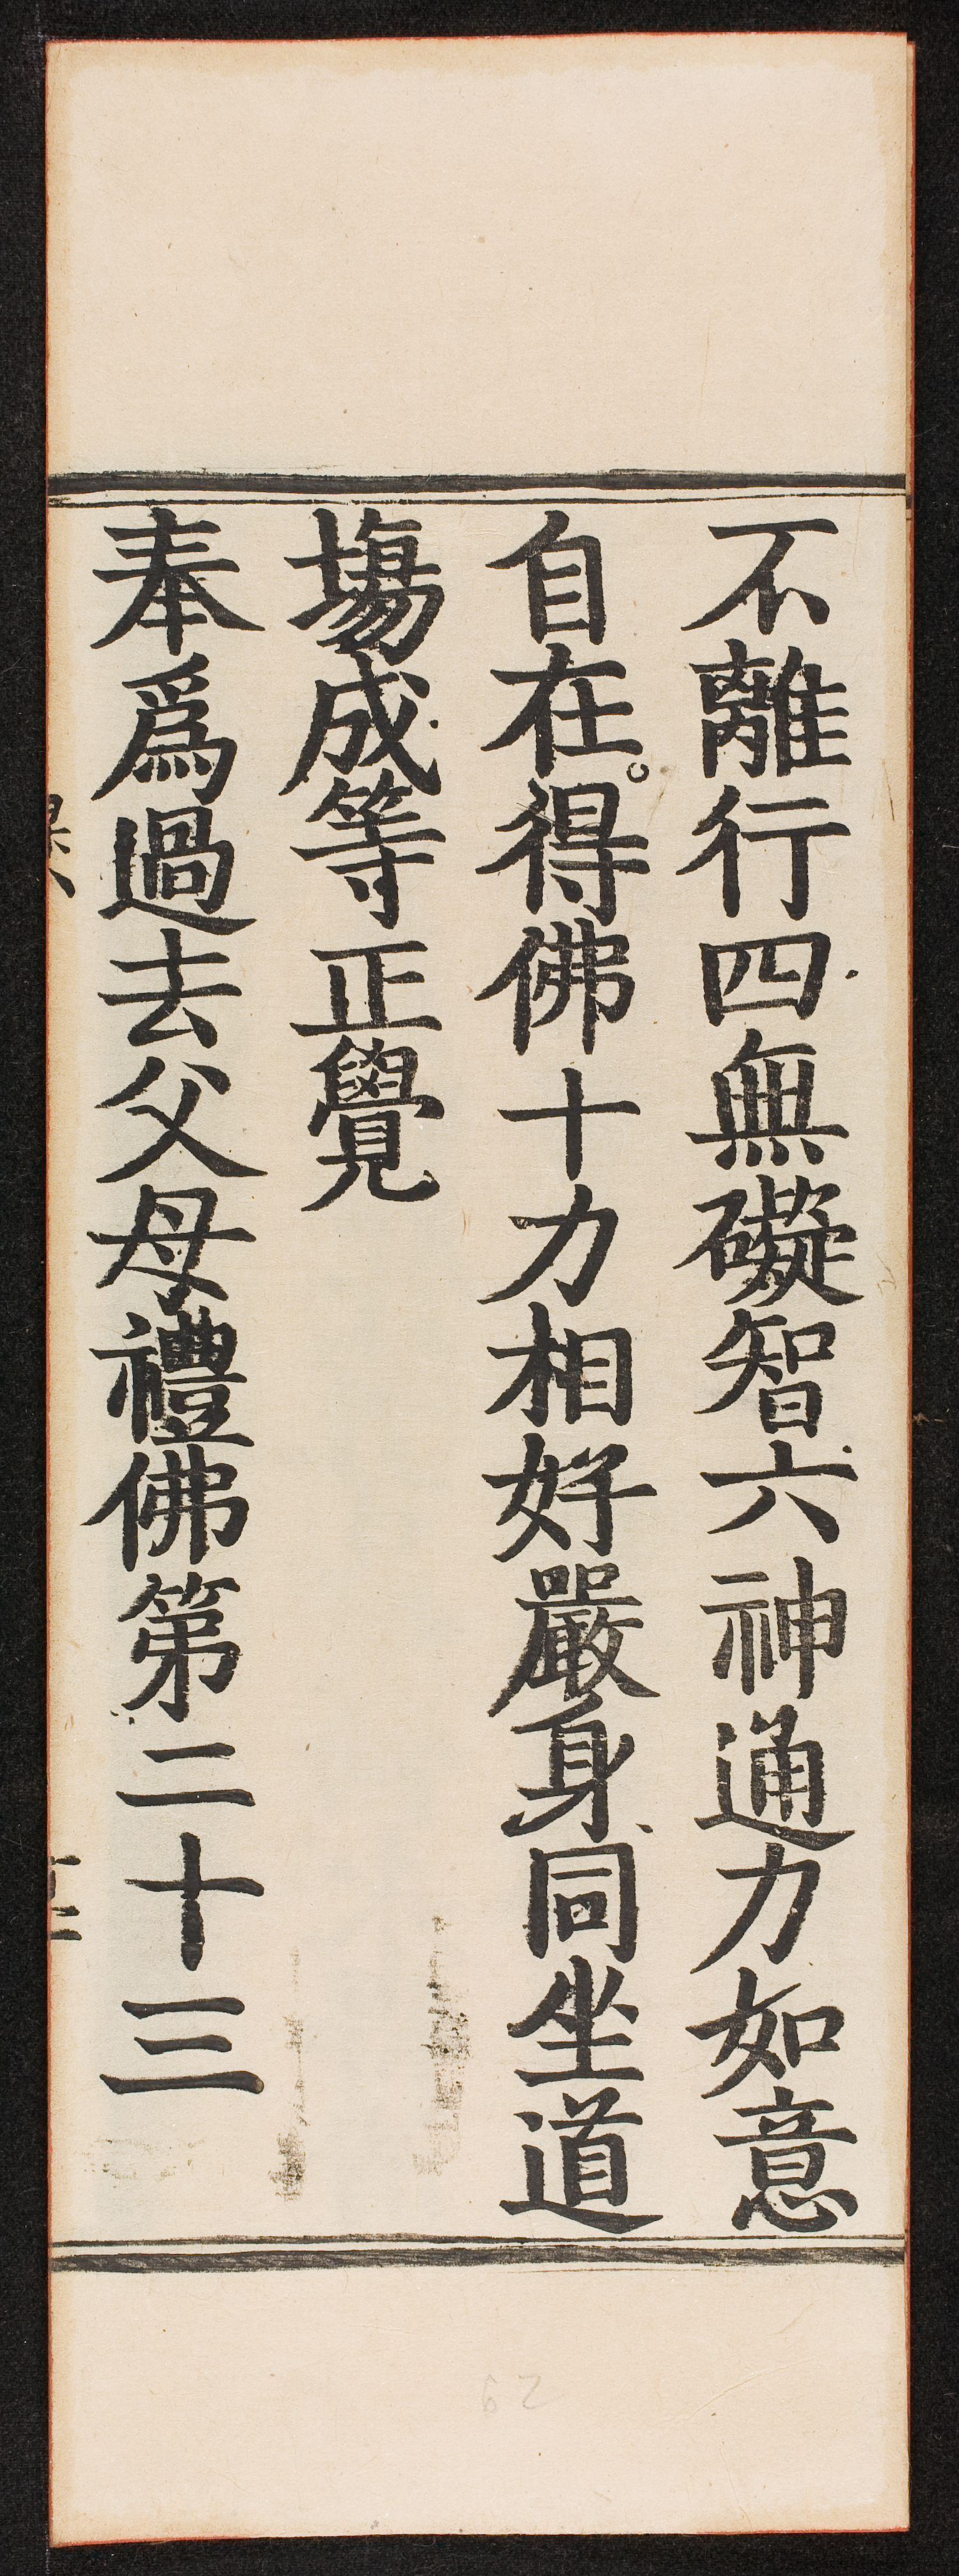 不離行四無礙智六神通力如意
自在。得佛十力相好嚴身同坐道
塲成等正覺
奉爲過去父母禮佛第二十三
62